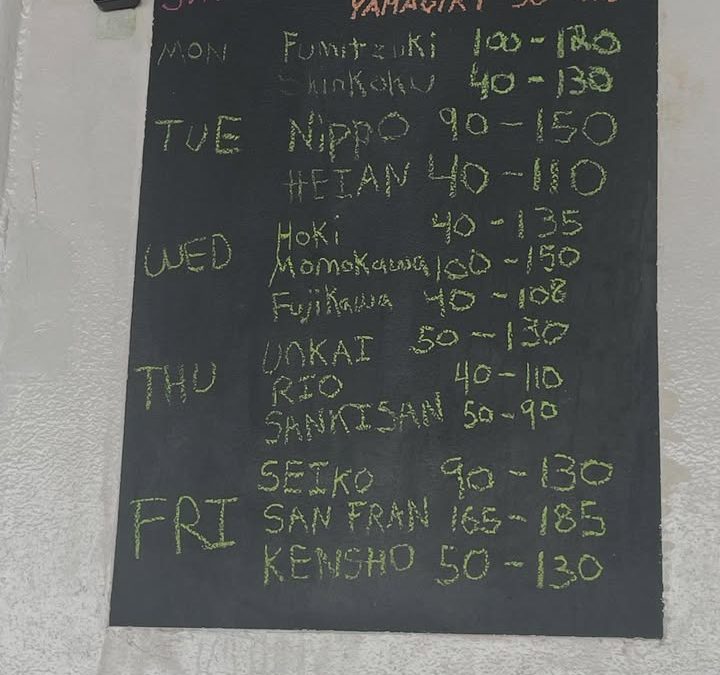 YAMAGIRI
MON Fumitzuki 100-120
Shinkoku 40-130
TUE NippO 90-150
HEIAN 40-110
Hoki 40-135
WED Momokawa 100-150
Fujikawa 40-108
UNKAI 50-130
THU RIO 40-110
SANKISAN 50-90
SEIKO 90-130
FRI SAN FRAN 165-185
KENSHO 50-130